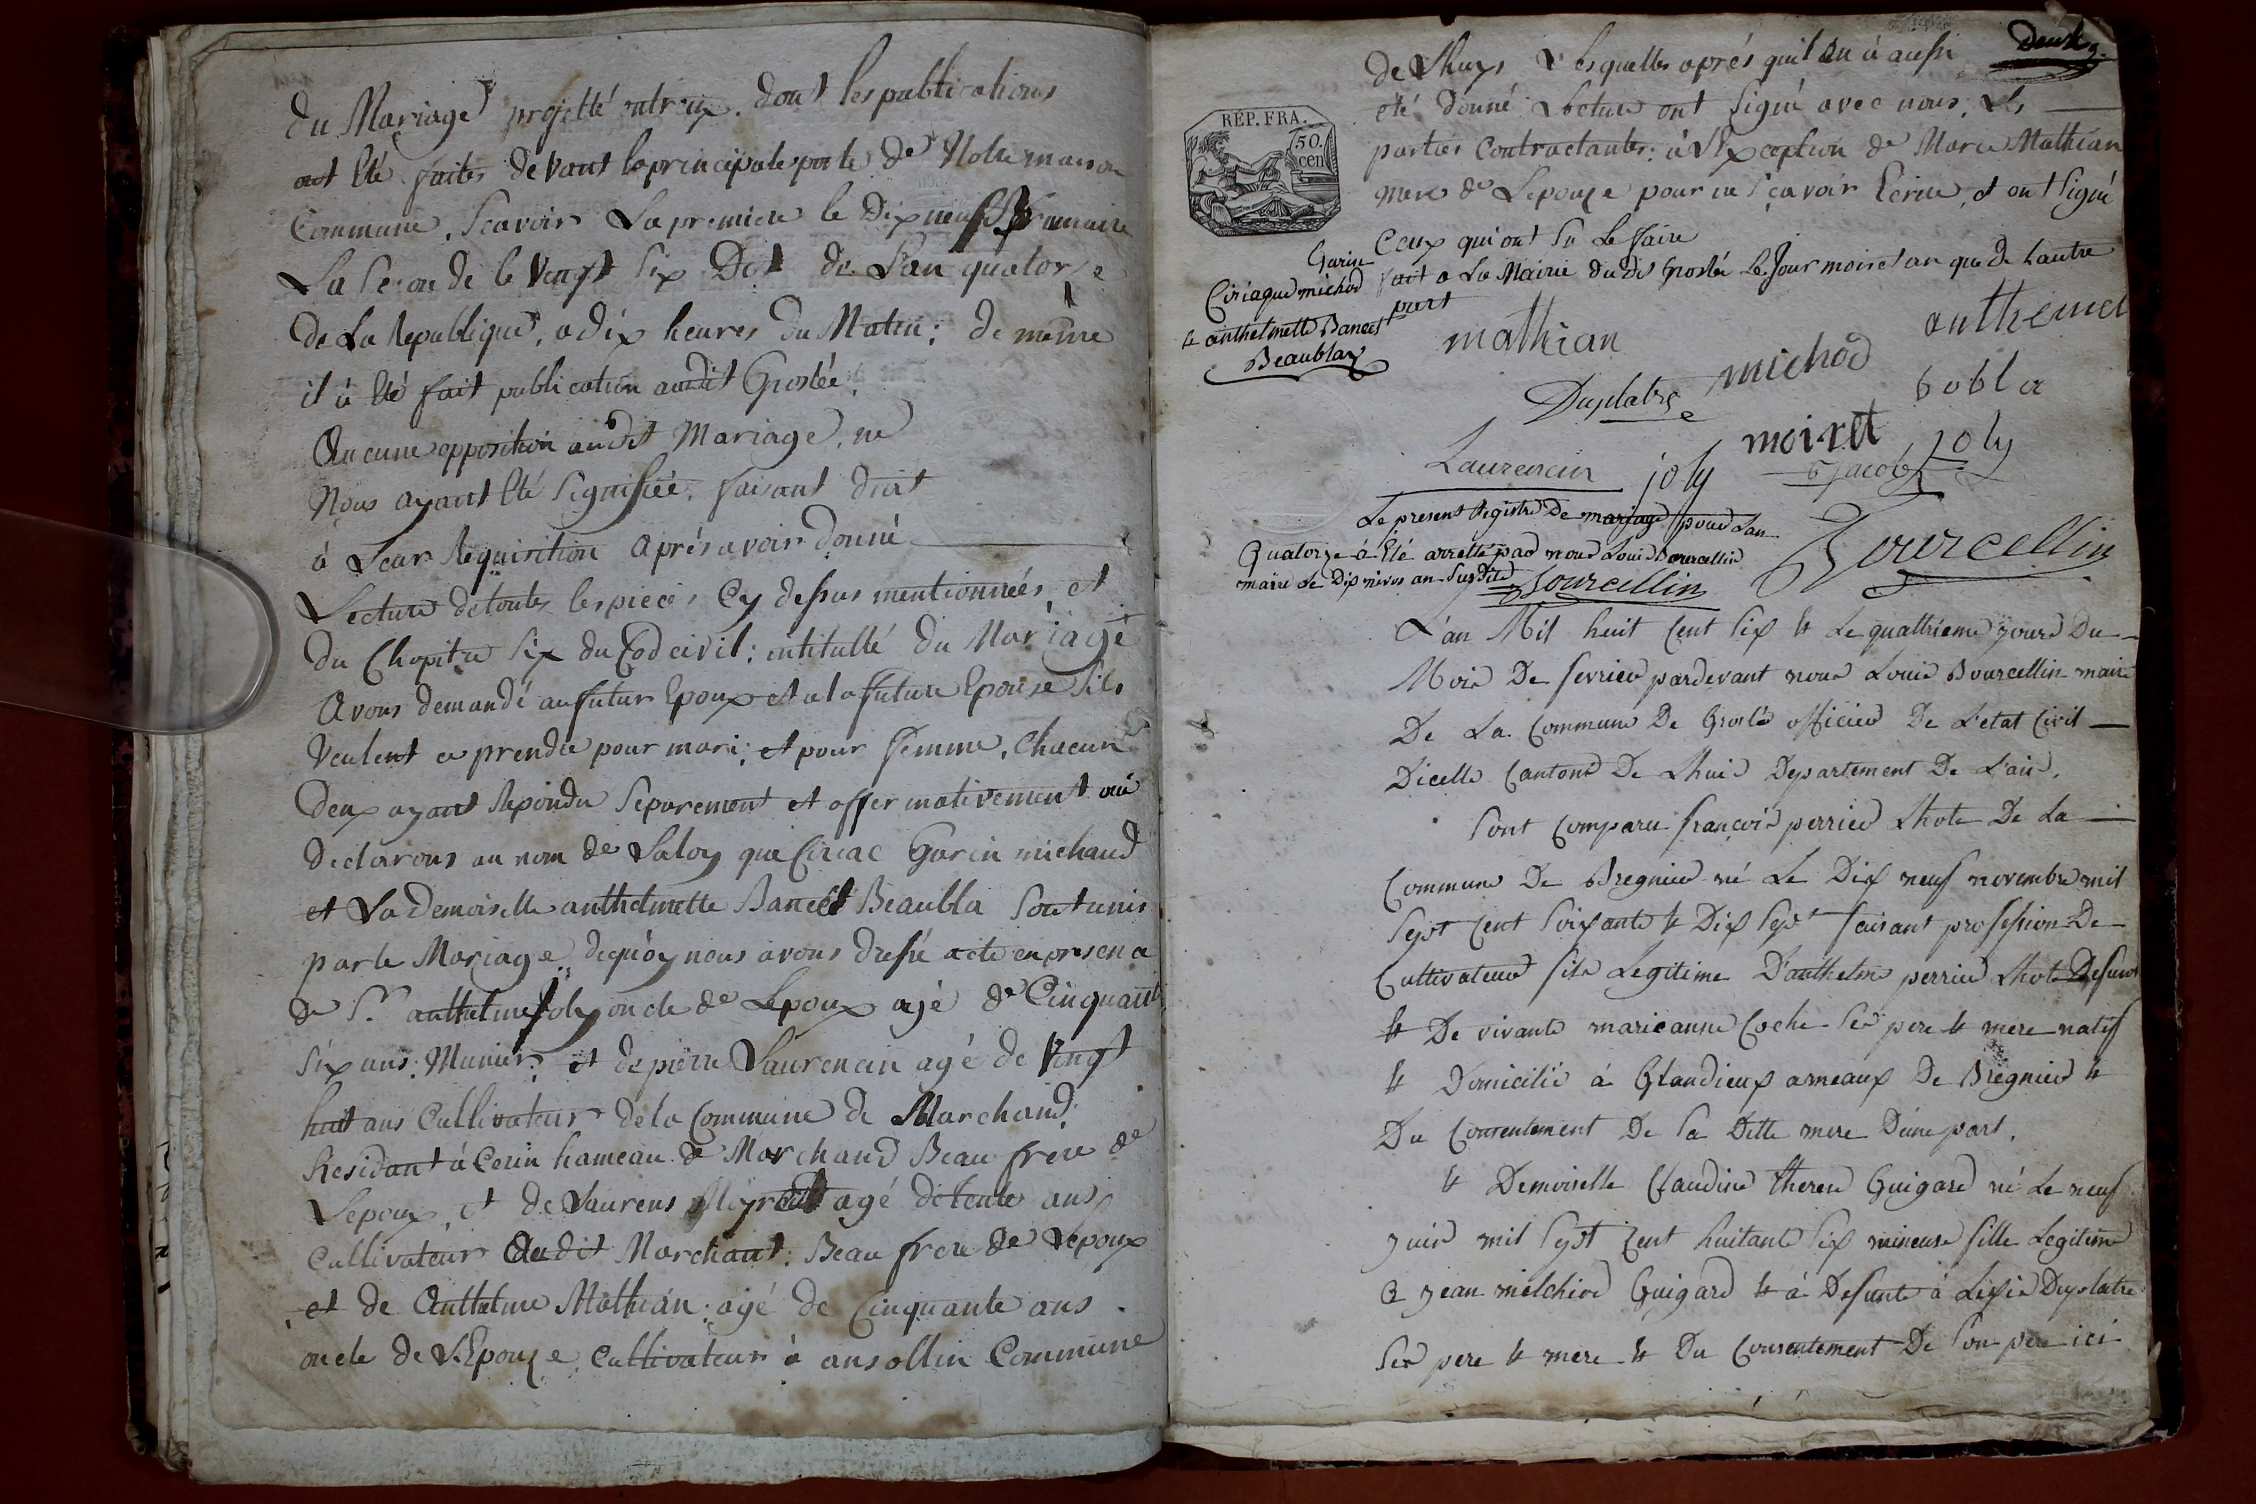 du Mariage projetté entreux. dont les publications
ont Eté faites devant la principale porte de Notre maison
Commune, Scavoir La premiere le Dixneuf frimaire
La Seconde le Vingt Six Dit de L'an quatorze
de La Republique, a dix heures du Matin; de même
il à Eté fait publication audit Groslée,
Aucune opposition audit Mariage, ne
Nous ayant Eté Signifiée, faisant droit
à Leur Requisition après avoir donné
Lecture de toutes les pieces Cy dessus mentionnées, et
du Chapitre Six du Cod civil: intitullé du Mariage
Avons demandé au futur Epoux et a la future Epouse Sils
Veulent ce prendre pour mari; et pour femme, Chacun
deux ayant Repondu Separement et affermativement
Declarons au nom de Laloy que Ciriac Garin michaud
et La demoiselle anthelmette Bancet Beaubla Sont unis
par le Mariage, dequoy nous avons dressé acte en presence
de Sr. anthelme Joly oncle de Lepoux agé de Cinquante
Six ans; Munier; et de pierre Laurencin agé de Vingt
huit ans Cultivateur de la Commune de Marchand;
Residant à Cerin hameau de Marchand Beau frere de
Lepoux, et de Laurens Moyret agé de trente ans
Cultivateur Audit Marchant; Beau frere de Lepoux
et de Anthelme Mathian; agé de Cinquante ans
oncle de LEpouze, Cultivateur à ansollin Commune
Deux
de Lhuys Lesquelles après quil en à aussi
eté donné Lecture ont Signé avec nous; Les
parties Contractantes; à LException de Marie Mathian
mere de Lepouze pour ne Sçavoir Ecrire, et ont Signé
Ceux qui ont Su Le faire
fait a La Mairie du dit Groslée Le Jour mois et an que de Lautre
part
REP. FRA.
50. cen
Garin
Ciriaque michod
& anthelmette Bancet
Beaublaz
mathian
michod
anthemet
bobla
Duplatre
moiret
Laurencin
joly
Jacob
joly
Le present Registre De mariage pour Lan
Quatorze à Eté arretté par nous Louis Bourcellin
maire Le Dix nivos an Susdite
Bourcellin
Bourcellin
L'an Mil huit Cent Six & Le quattrieme jours Du
Mois De fevrier pardevant nous Louis Bourcellin maire
De La Commune De Groslée officier De L'etat Civil
Dicelle Cantons De Lhuis Departement De L'ain,
Sont Comparu françois perrier Lhote De La
Commune De Bregnier né Le Dix neuf novembre mil
Sept Cent Soixante & Dix Sept faisant profession De
Cultivateur fils Legitime D'anthelme perrier Lhote Defunt
& De vivante marieanne Coche Ses pere & mere natif
& Domicilié à Glandieux ameaux De Bregnier &
Du Consentement De Sa Ditte mere D'une part,
& Demoiselle Claudine therese Guigard né Le neuf
juin mil Sept Cent huitante Six mineuse fille Legitime
a jean melchior Guigard & à Defunte à Duplatre
Ses pere & mere & Du Consentement De Son pere ici